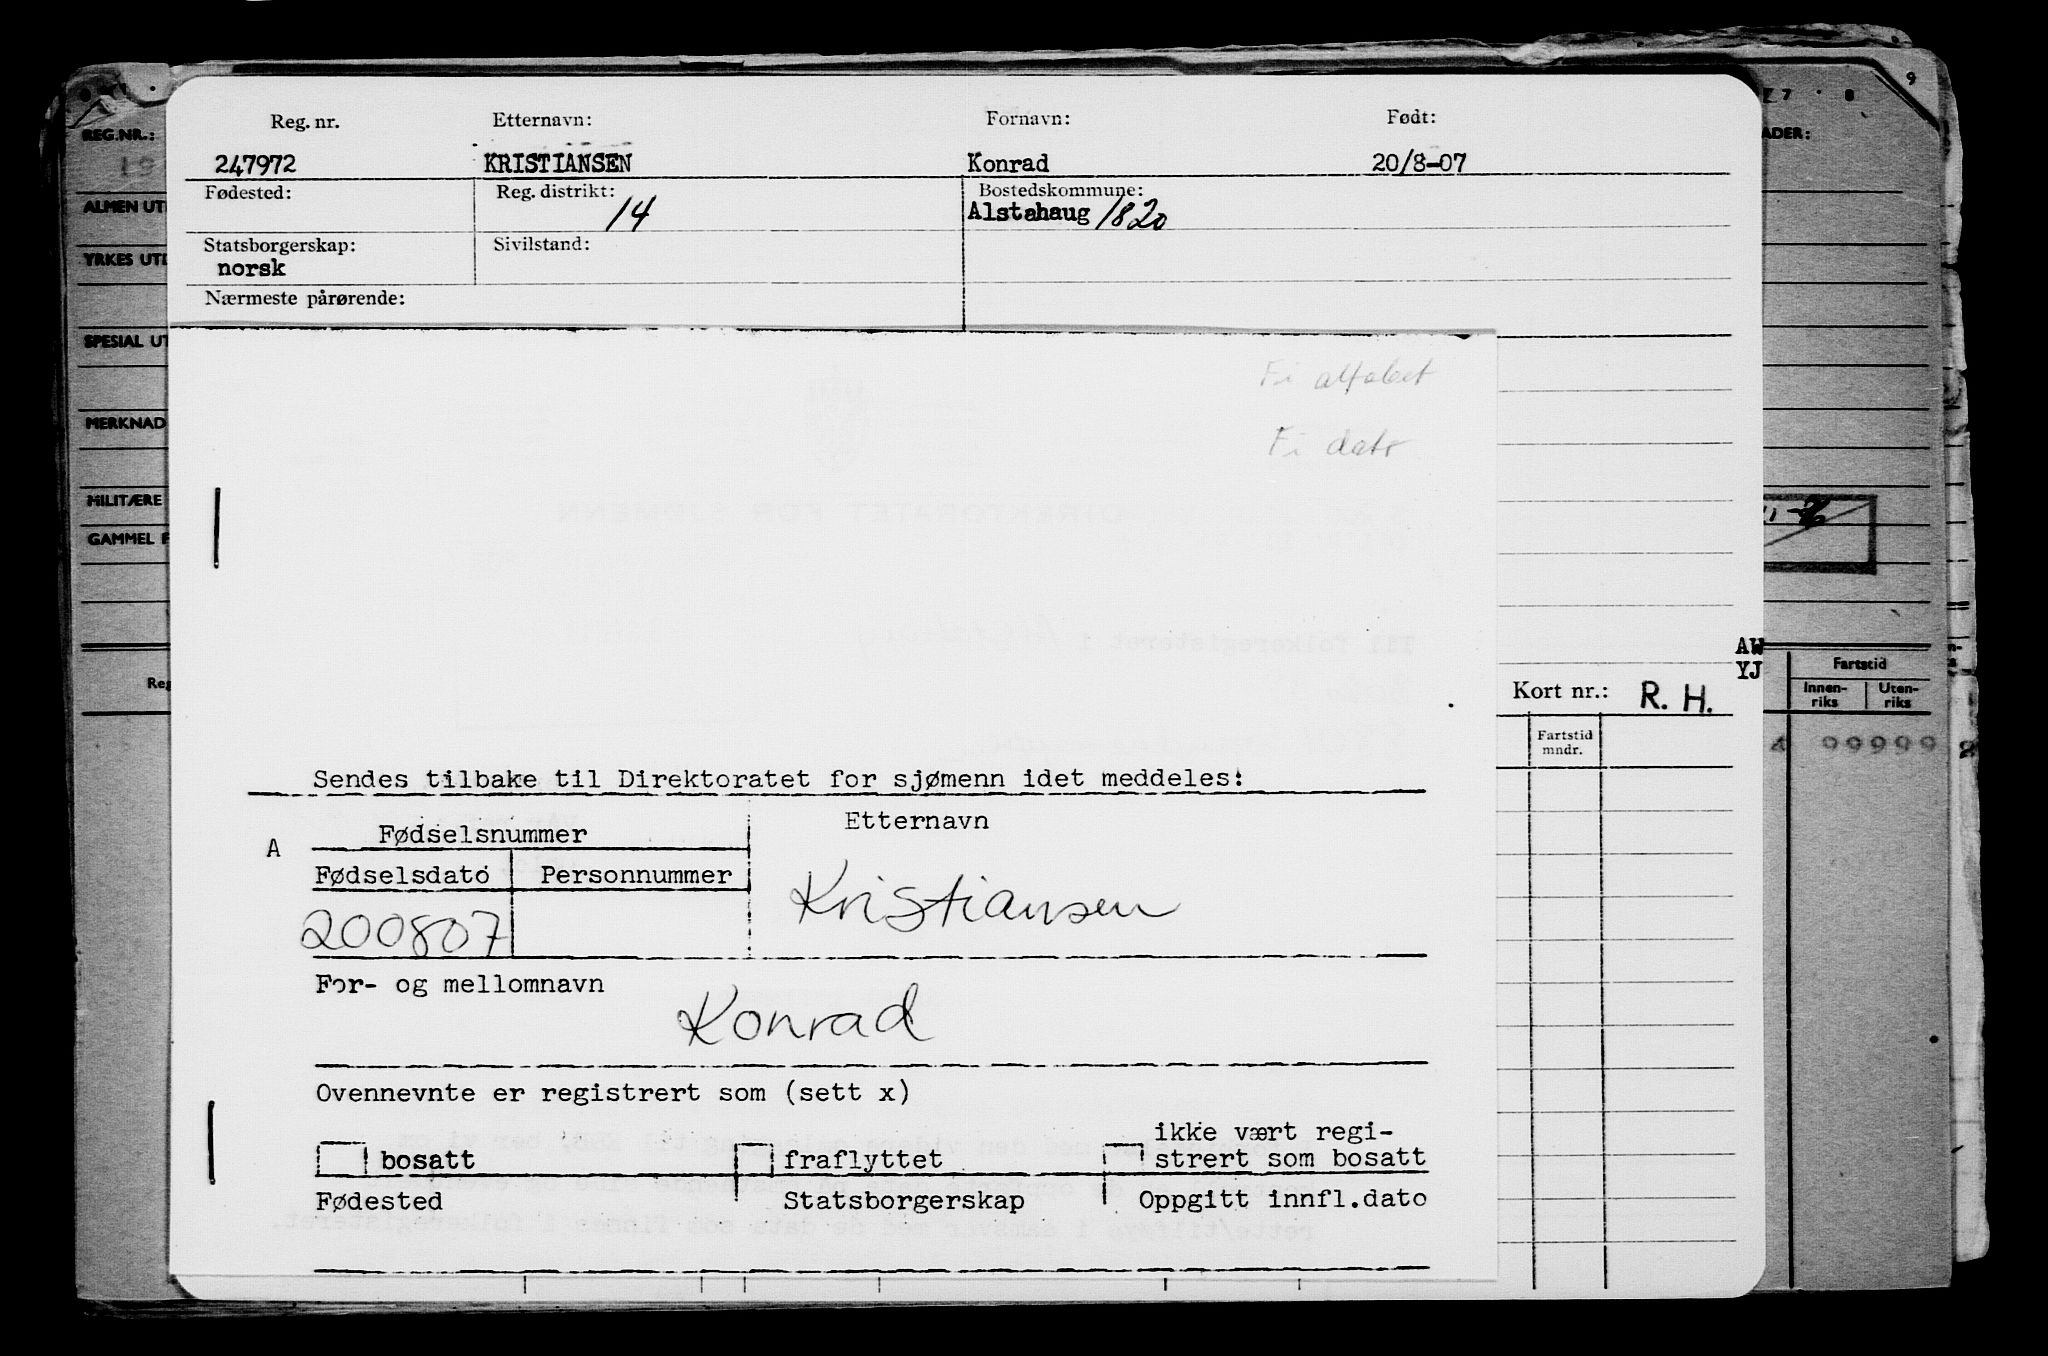 Reg. nr. Etternavn: Fornavn: Født:
247972 KRISTIANSEN Konrad 20/8-07
Fødested: Reg. distrikt: 14 Bostedskommune:
Alstahaug 1820
Statsborgerskap: Sivilstand:
norsk
Nærmeste pårørende:
Fi alfabet
Fi dato
Sendes tilbake til Direktoratet for sjømenn idet meddeles:
A Fødselsnummer Etternavn
Fødselsdato Personnummer
200807 Kristiansen
For- og mellomnavn
Konrad
Ovennevnte er registrert som (sett x)
bosatt fraflyttet ikke vært regi-
strert som bosatt
Fødested Statsborgerskap Oppgitt innfl.dato
Kort nr.: R. H.
Fartstid
mndr.
REG.NR.:
ALMEN UT
YRKES UTD
SPESIAL UT
MERKNAD
MILITÆRE
GAMMEL F
Reg
9
7 8
ADER:
AW
YJ
Fartstid
Innen-
riks
Uten-
riks
4 99999 8